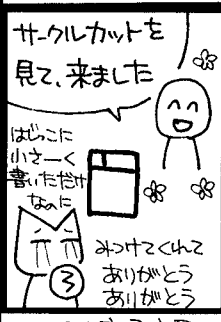 サークルカットを
見て、来ました
はじっこに
小さーく
書いただけ
なのに
みつけてくれて
ありがとう
ありがとう